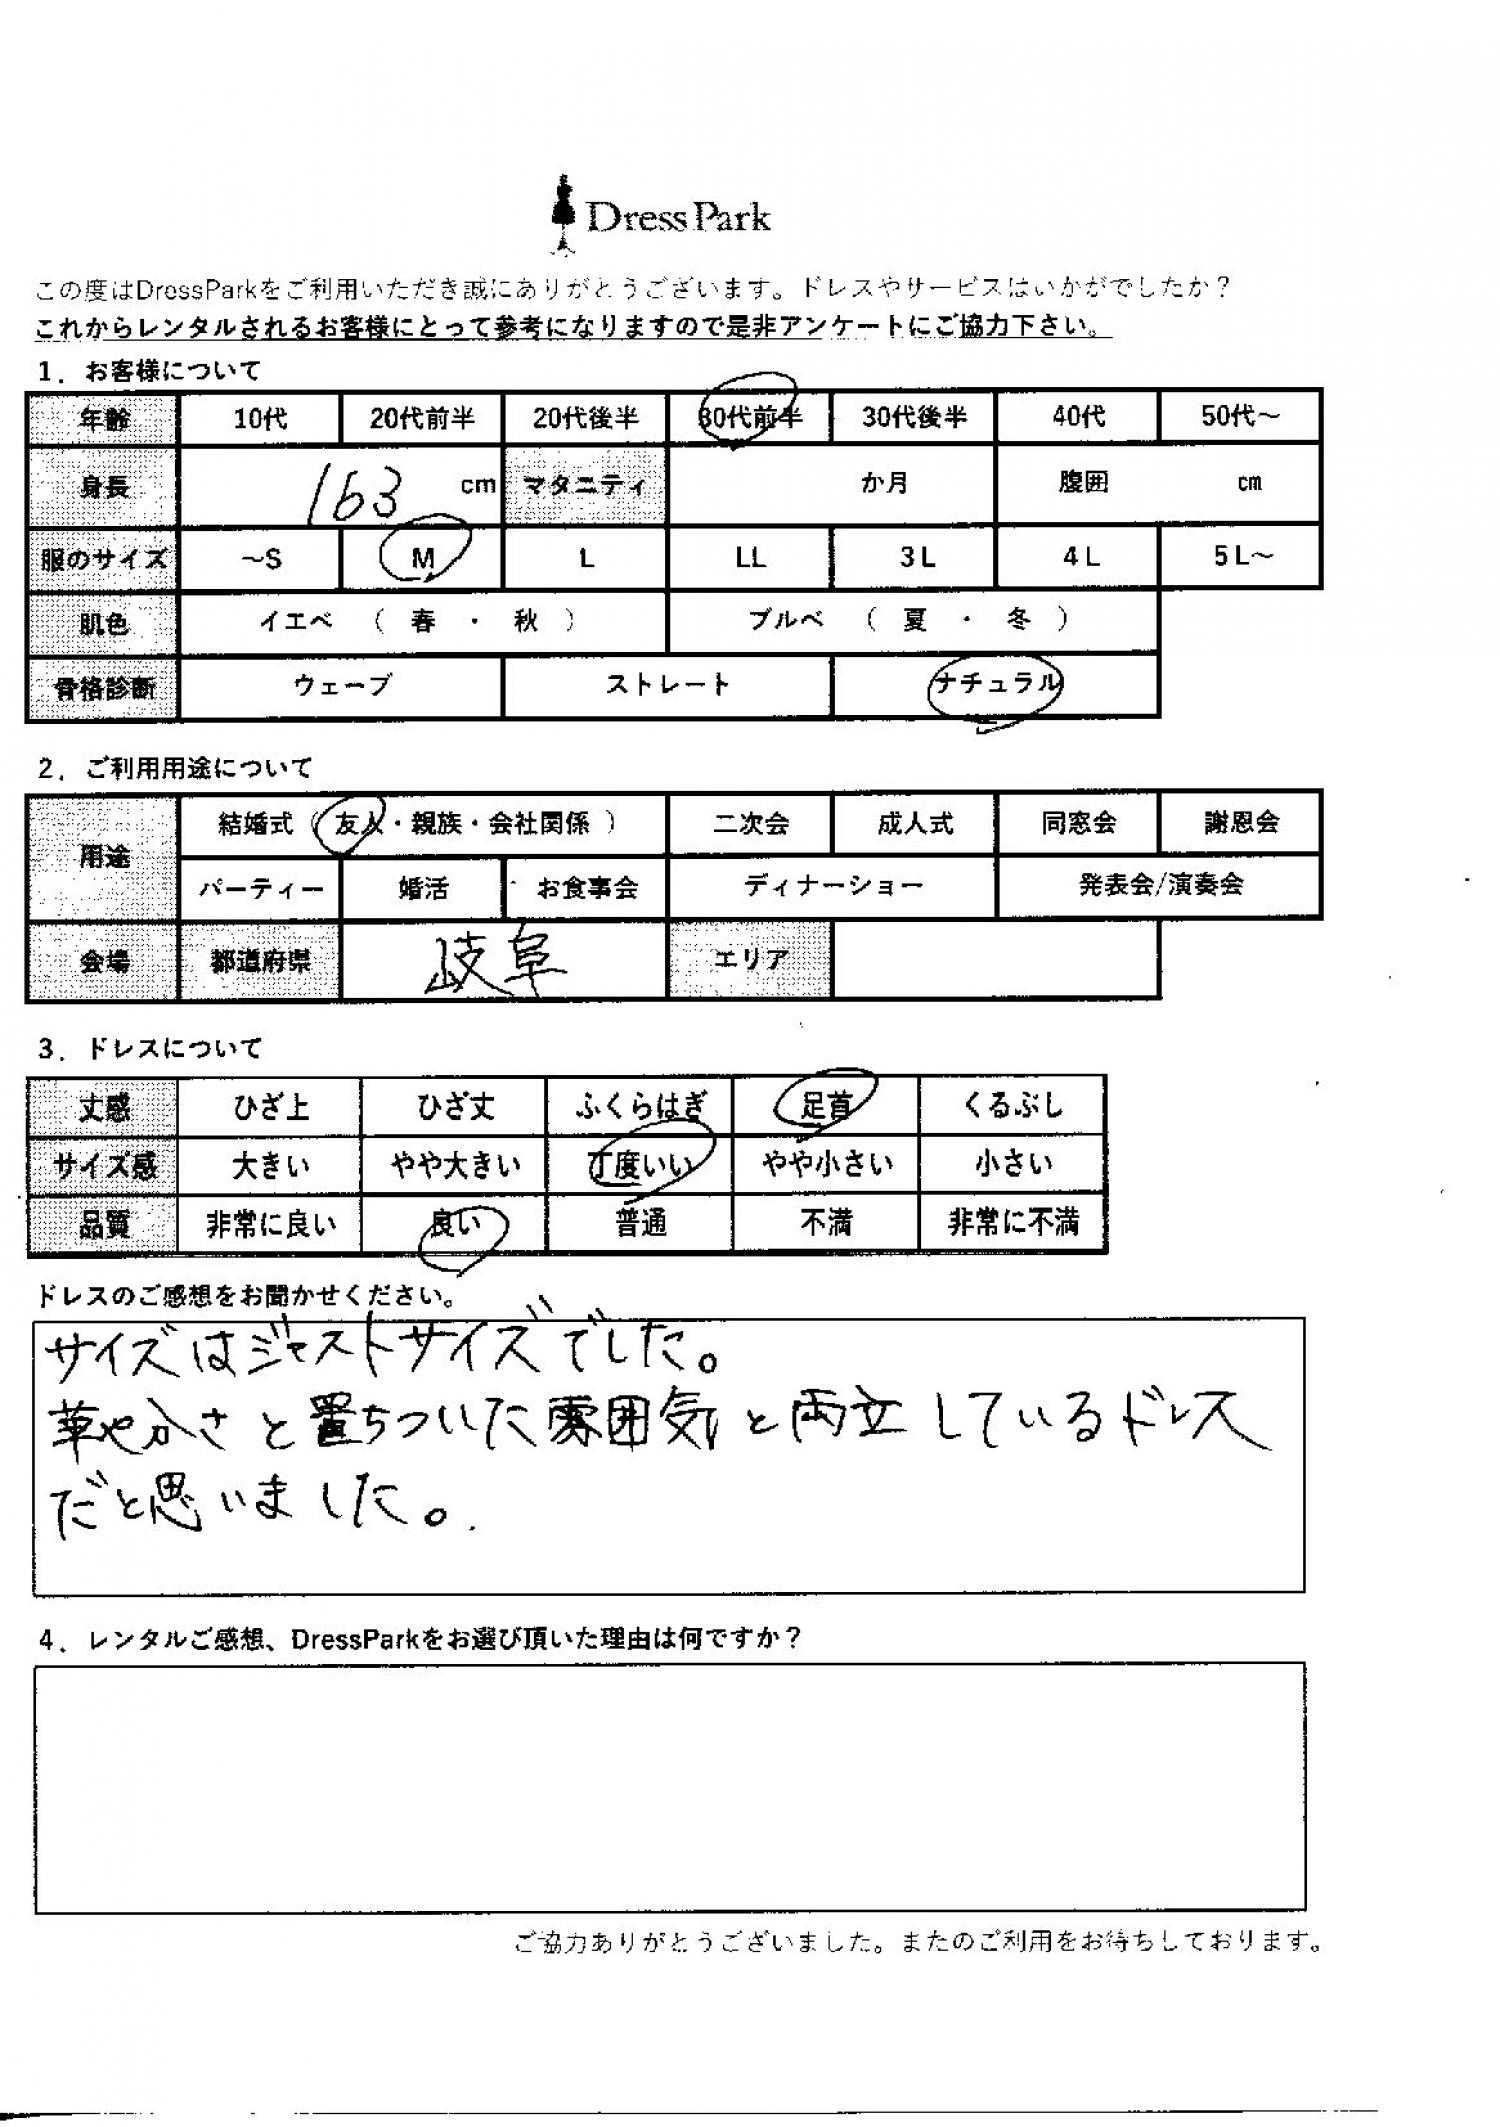 Dress Park
この度はDressParkをご利用いただき誠にありがとうございます。ドレスやサービスはいかがでしたか？
これからレンタルされるお客様にとって参考になりますので是非アンケートにご協力下さい。
1．お客様について
年齢 10代 20代前半 20代後半 30代前半 30代後半 40代 50代～
身長 163 cm マタニティ か月 腹囲 cm
服のサイズ ～S M L LL 3L 4L 5L～
肌色 イエベ （ 春 ・ 秋 ） ブルベ （ 夏 ・ 冬 ）
骨格診断 ウェーブ ストレート ナチュラル
2．ご利用用途について
用途 結婚式（ 友人・親族・会社関係 ） 二次会 成人式 同窓会 謝恩会
パーティー 婚活 お食事会 ディナーショー 発表会/演奏会
会場 都道府県 岐阜 エリア
3．ドレスについて
丈感 ひざ上 ひざ丈 ふくらはぎ 足首 くるぶし
サイズ感 大きい やや大きい 丁度いい やや小さい 小さい
品質 非常に良い 良い 普通 不満 非常に不満
ドレスのご感想をお聞かせください。
サイズはジャストサイズでした。
華やかさと置ちついた雰囲気と両立しているドレス
だと思いました。
4．レンタルご感想、DressParkをお選び頂いた理由は何ですか？
ご協力ありがとうございました。またのご利用をお待ちしております。